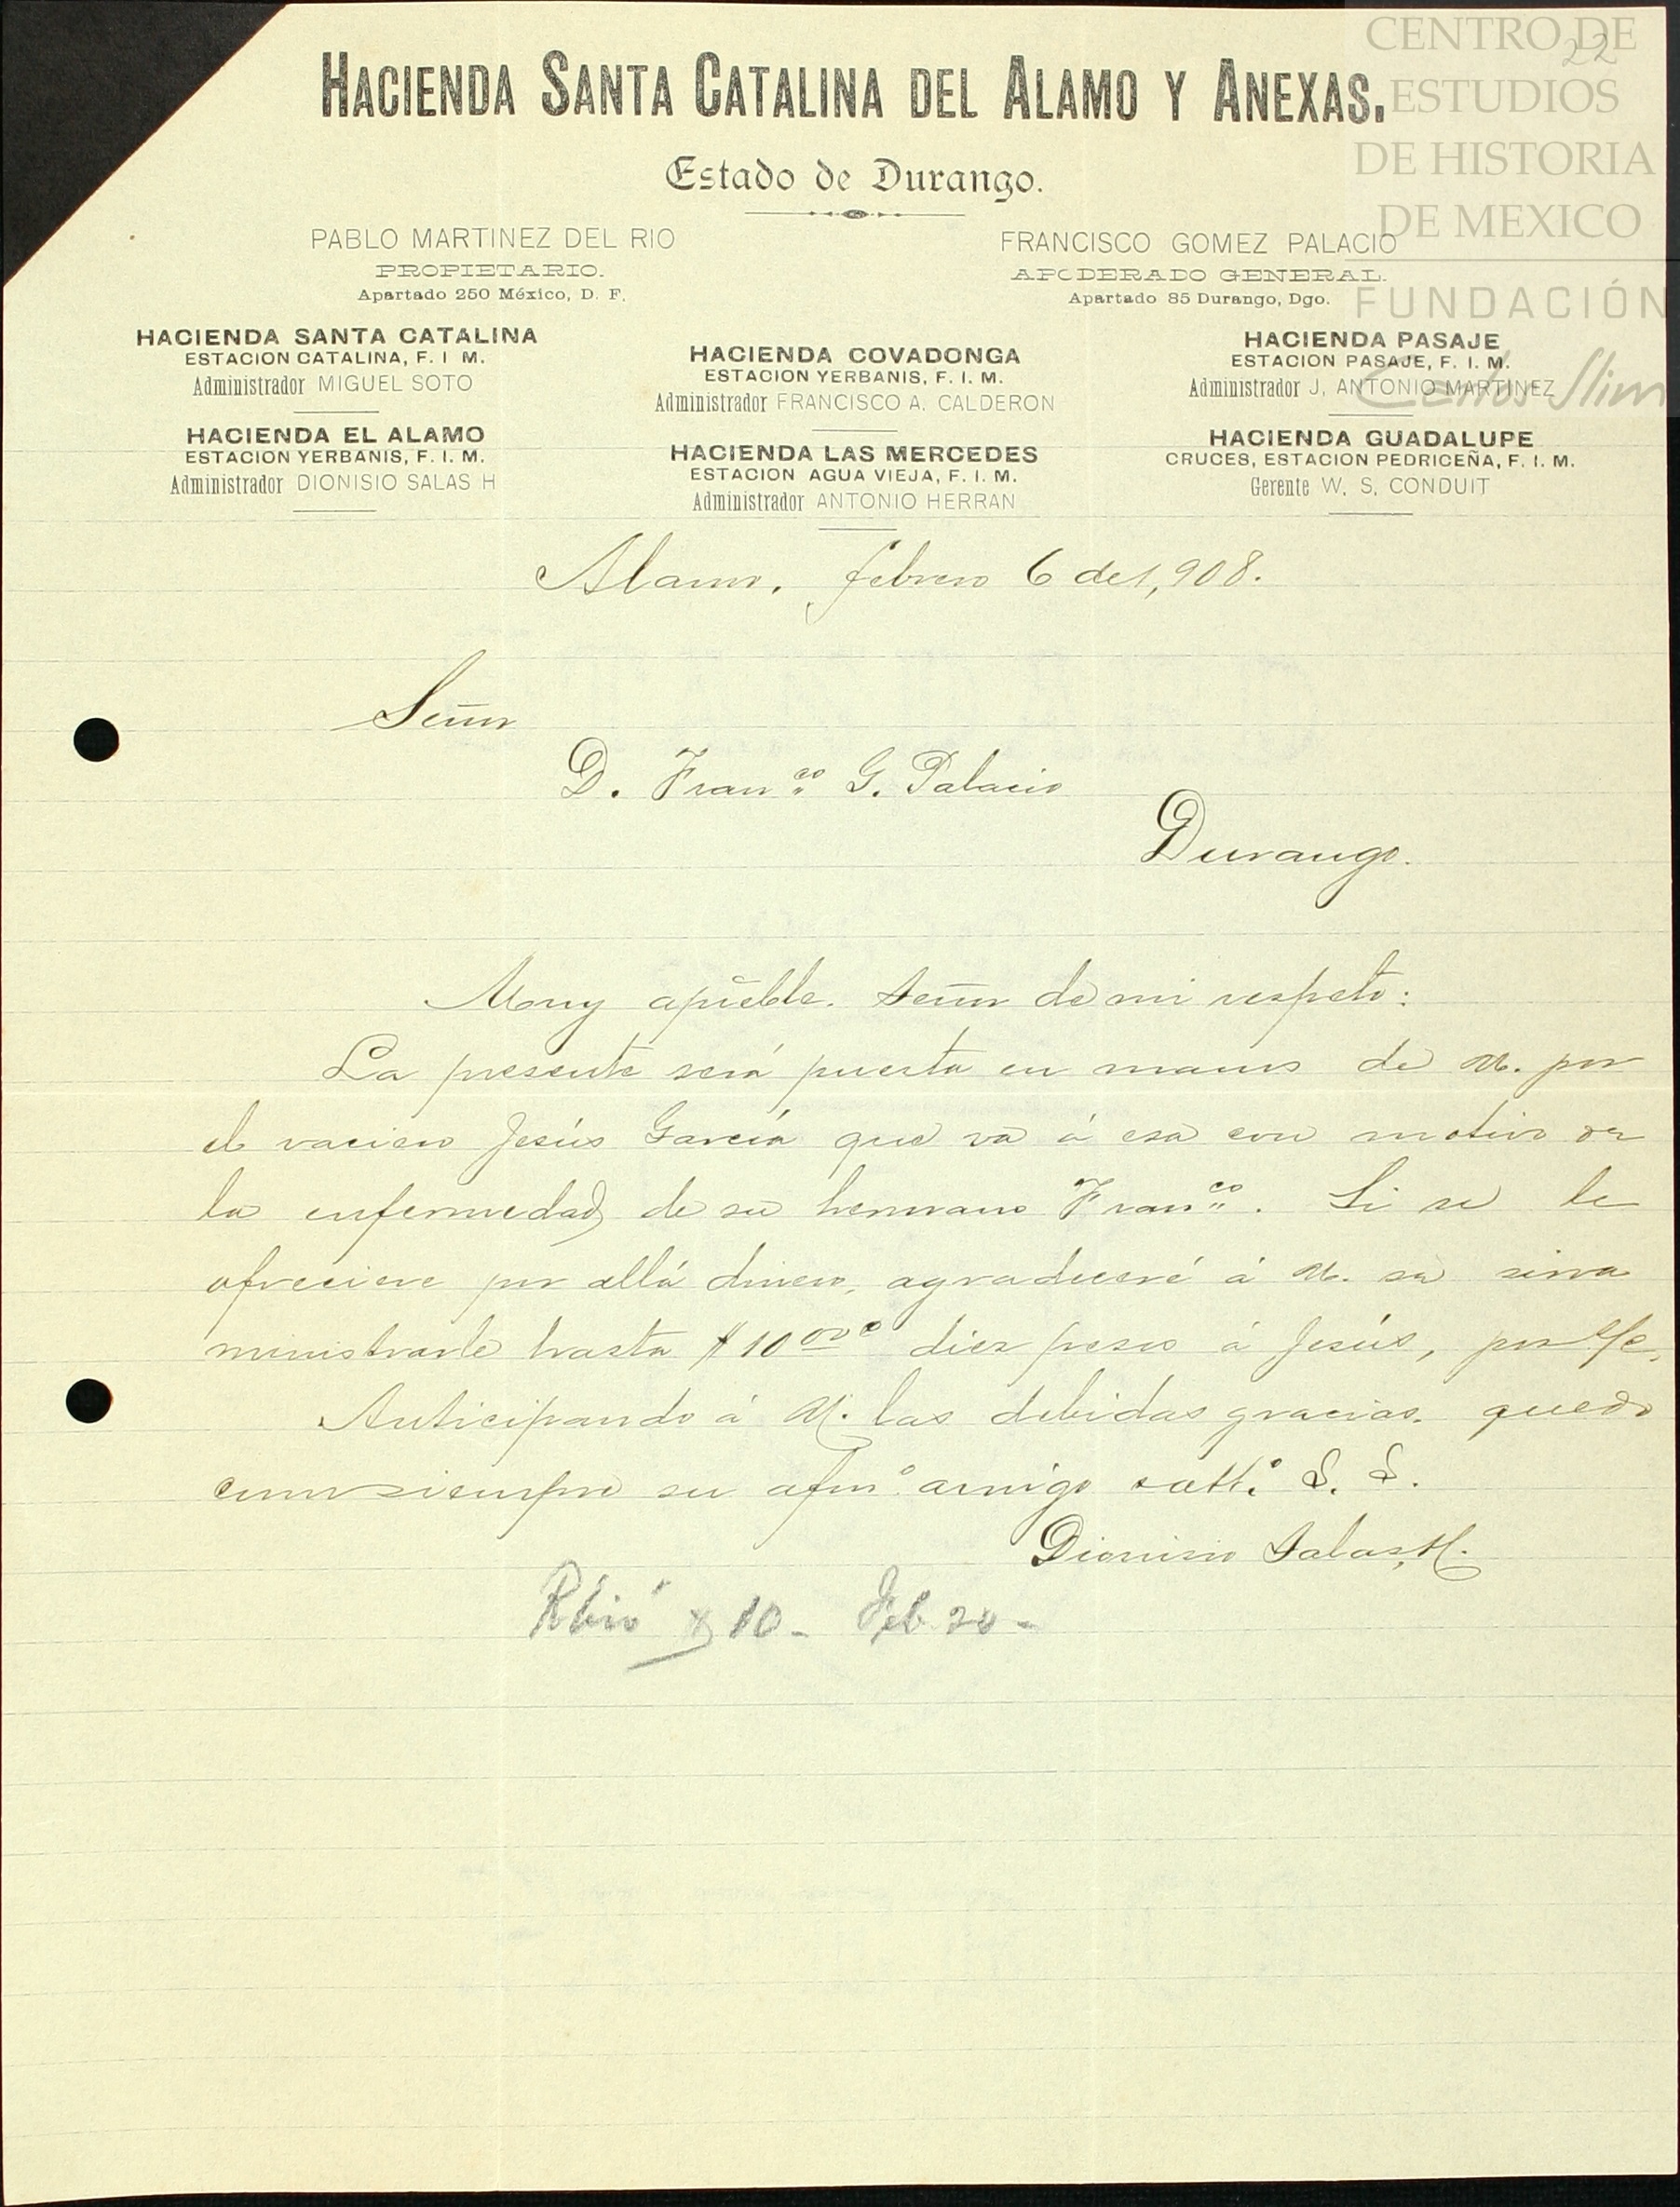 22
HACIENDA SANTA CATALINA DEL ALAMO Y ANEXAS.
Estado de Durango.
PABLO MARTINEZ DEL RIO
PROPIETARIO.
Apartado 250 México, D. F.
FRANCISCO GOMEZ PALACIO
APODERADO GENERAL.
Apartado 85 Durango, Dgo.
HACIENDA SANTA CATALINA
ESTACION CATALINA, F. I M.
Administrador MIGUEL SOTO
HACIENDA EL ALAMO
ESTACION YERBANIS, F. I. M.
Administrador DIONISIO SALAS H
HACIENDA COVADONGA
ESTACION YERBANIS, F. I. M.
Administrador FRANCISCO A. CALDERON
HACIENDA LAS MERCEDES
ESTACION AGUA VIEJA, F. I. M.
Administrador ANTONIO HERRAN
HACIENDA PASAJE
ESTACION PASAJE, F. I. M.
Administrador J. ANTONIO MARTINEZ
HACIENDA GUADALUPE
CRUCES, ESTACION PEDRICEÑA, F. I. M.
Gerente W. S. CONDUIT
CENTRO DE
ESTUDIOS
DE HISTORIA
DE MEXICO
FUNDACIÓN
Carlos Slim
Alamo, febrero 6 de 1,908.
Señor
D. Franco G. Palacio
Durango.
Muy apreble. Señor de mi respeto:
La presente será puesta en manos de U. por
el vaciero Jesús García que va á esa con motivo de
la enfermedad de su hermano Franco. Si se le
ofreciere por allá dinero, agradeceré á U. se sirva
ministrarle hasta $10 00 c diez pesos á Jesús, por %c.
Anticipando á U. las debidas gracias, quedo
como siempre su afmo. amigo y atto. S. S.
Dionisio Salas H.
Rbió $10 - Feb 20 -